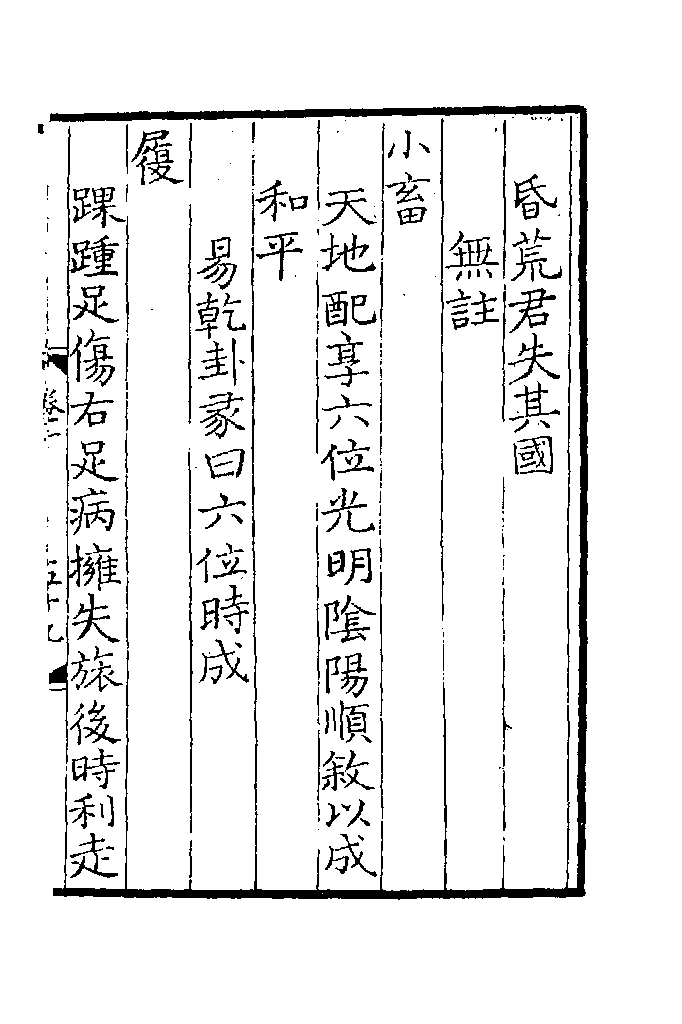 昏荒君失其國
無註
小畜
天地配享六位光明陰陽順敘以成
和平
易乾卦彖曰六位時成
履
踝踵足傷右足病擁失旅後時利走
卷二
五十九